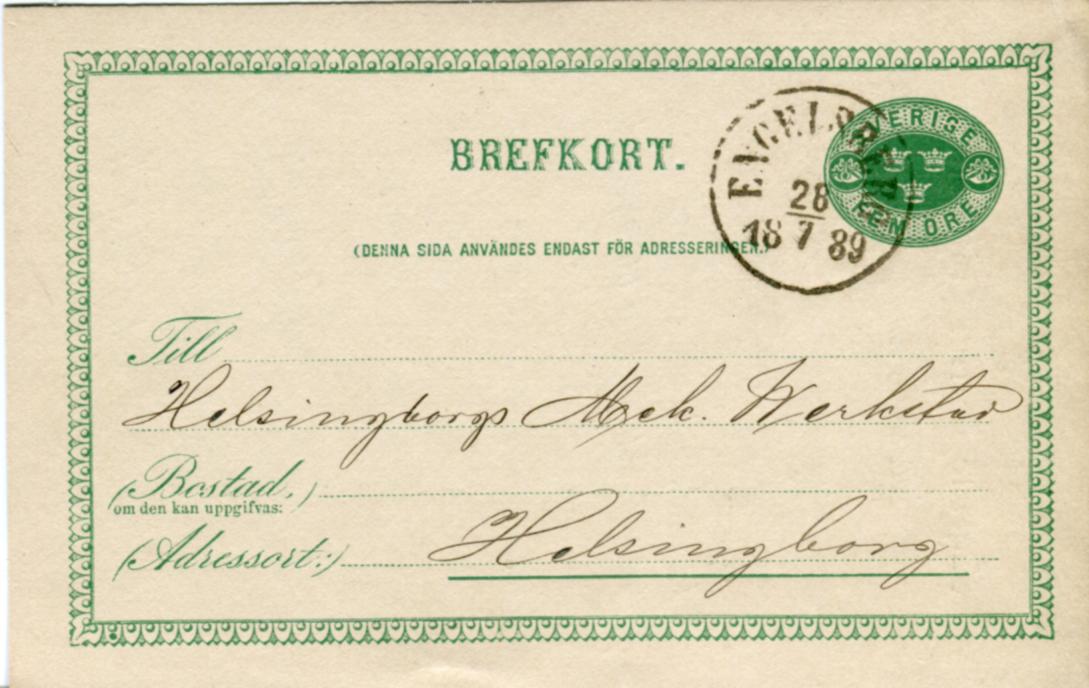 SVERIGE
FEM ÖRE
28
18 7 89
BREFKORT.
(DENNA SIDA ANVÄNDES ENDAST FÖR ADRESSERINGEN.)
Till
Helsingborgs Mek. Werkstad
(Bostad.)
om den kan uppgifvas:
(Adressort:) Helsingborg